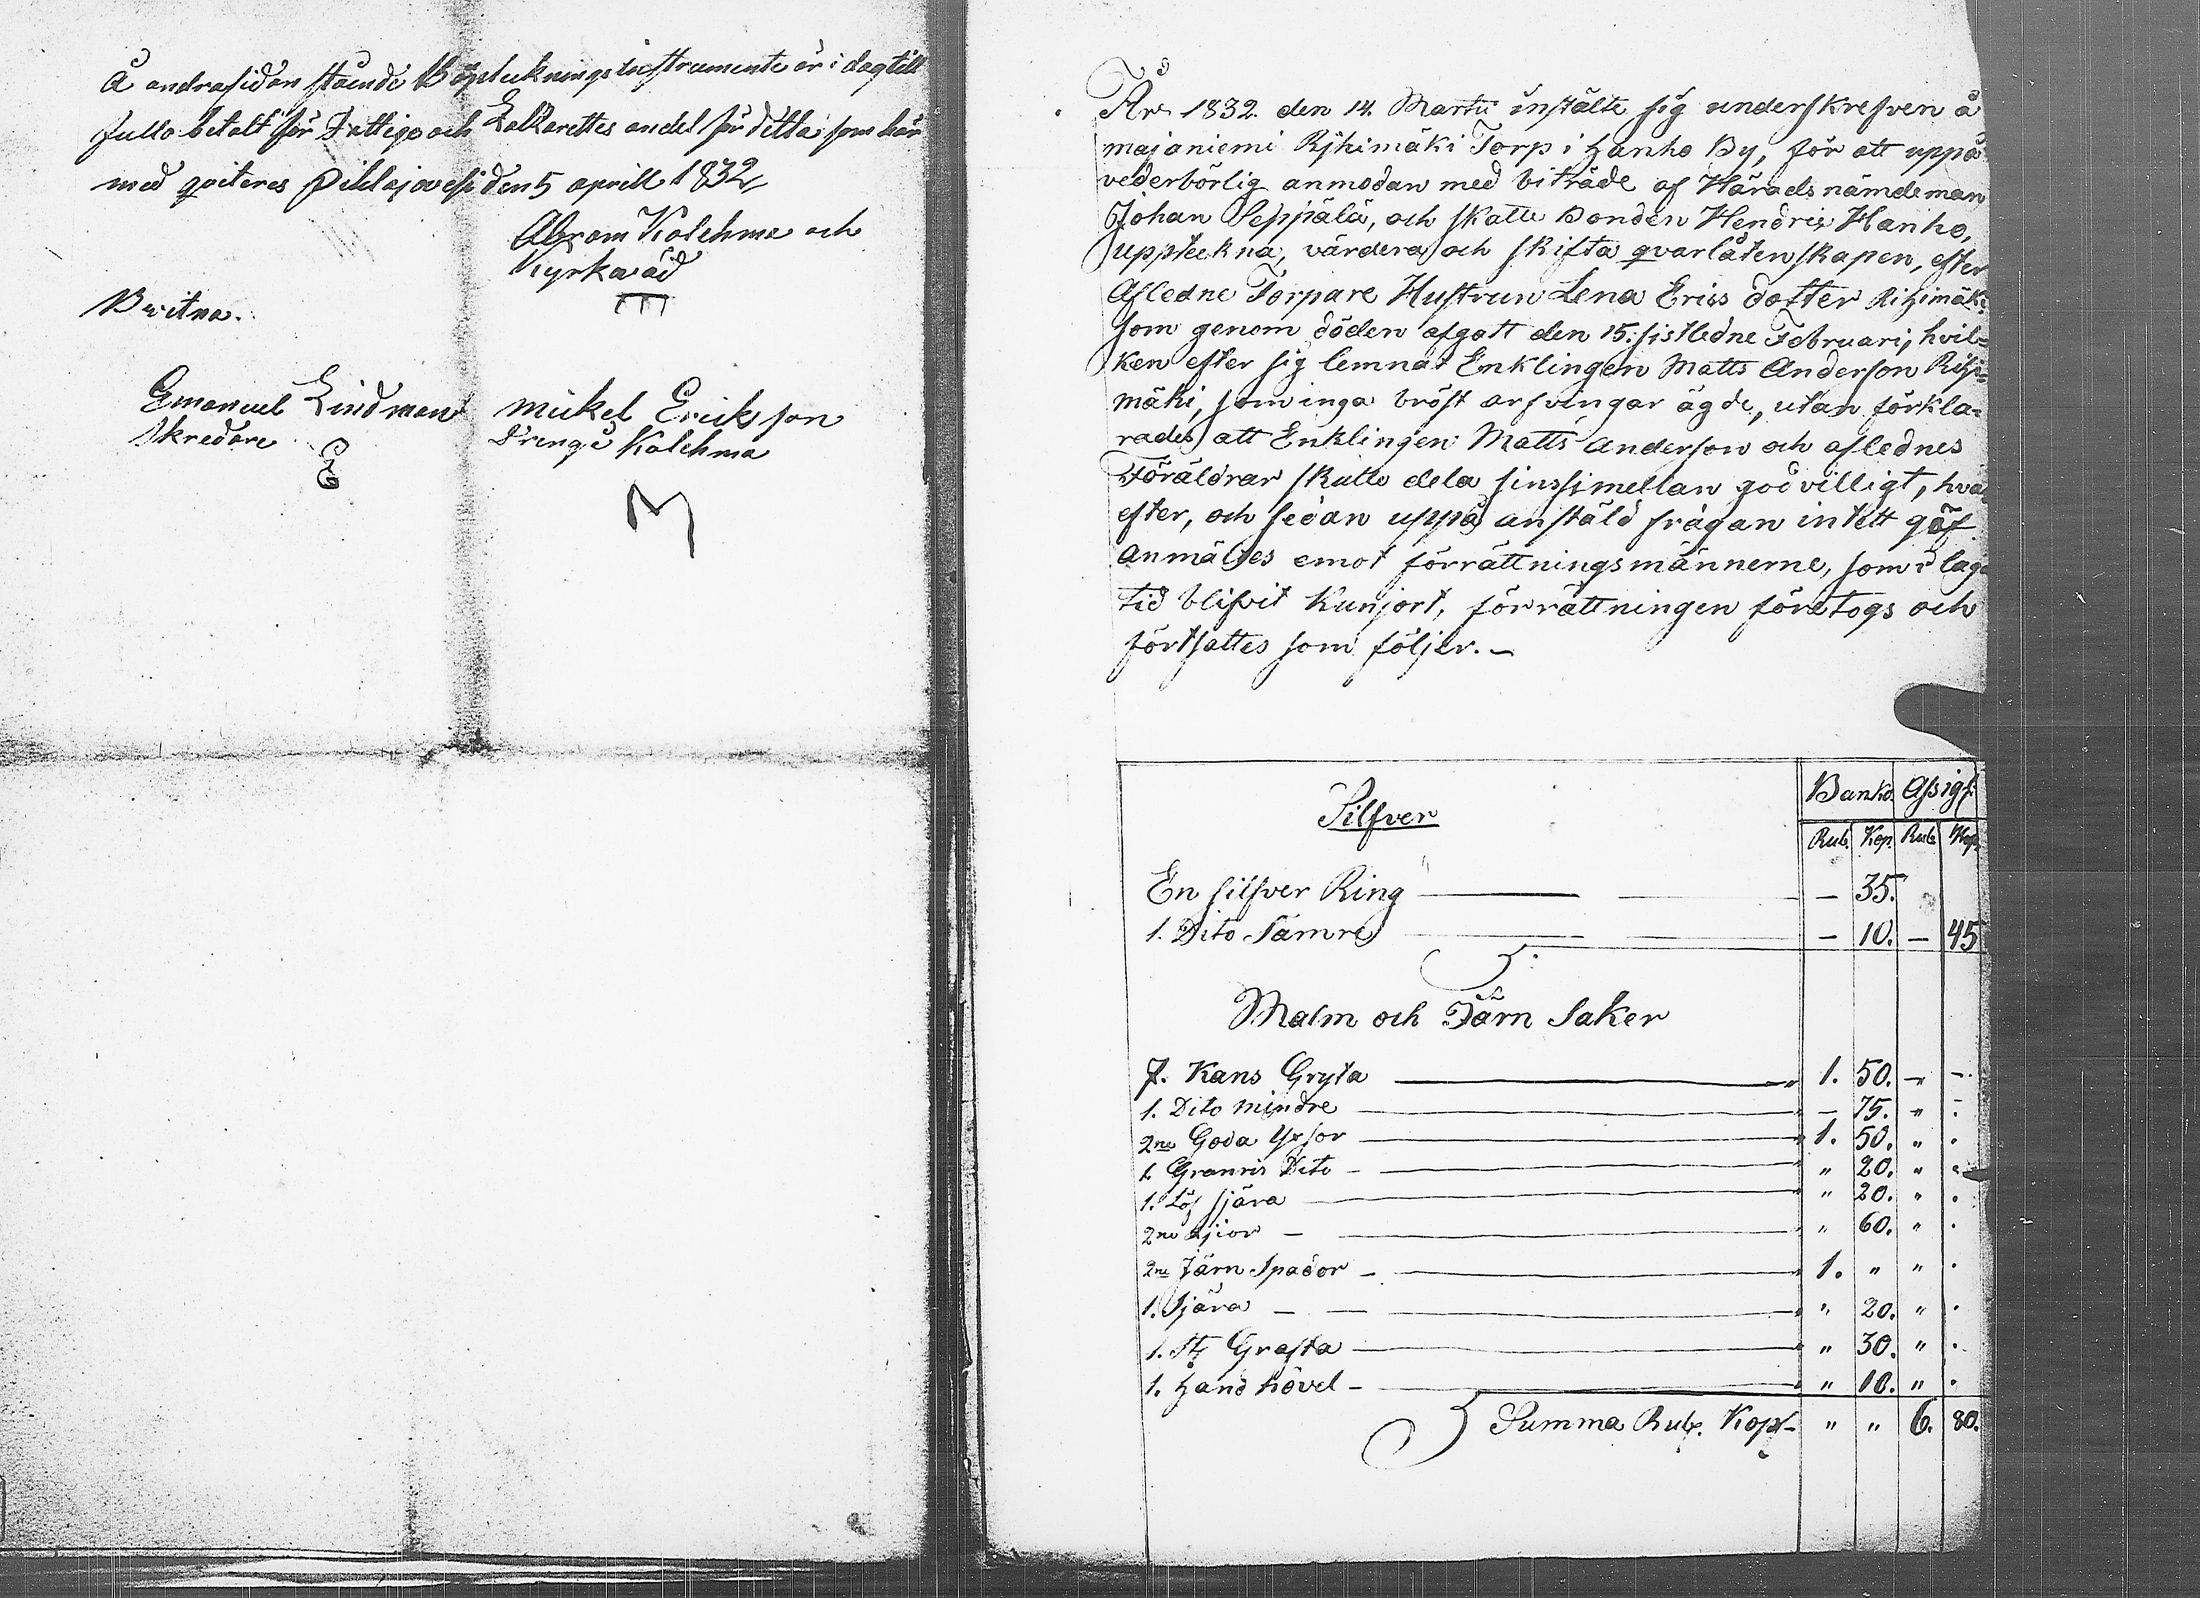 Å andrasidan stående Bouptekningsinstrumente är i dag till
fullo betalt för Fattiga och Lattzarettes andel för detta som här
med qviteres Pihlajavesi den 5 aprill 1832
Abram Kolehma och
Kyrkoråd
Bevitna.
Emanuel Lindman
Skredare
Mickel Ericksson
Drenge Kolehma
M
År 1832. den 14. Martii instälte sig underskrefven å
majaniemi Rihimäki Torp i Hanho By, för att uppå
vederbörlig anmodan med biträde af Härads nämdeman
Johan Seppälä, och skatte Bonden Hendrix Hanho,
uppteckna, värdera och skifta qvarlåtenskapen, efter
Afledne Torpare Hustrun Lena Eriss dotter Rihimäki
som genom döden afgått den 15. sistledne Februari, hvil-
ken efter sig lemnat Enklingen Matts Anderson Rihi-
mäki, som inga bröst arfvingar ägde, utan förkla-
rades att Enklingen Matts Anderson och aflednes
Föräldrar skulle dela sinsimellan godvilligt, hvar
efter, och sedan uppå anstäld frågan intett jäf
anmältes emot förrättningsmännerne, som i laga
tid blifvit kunjort, förrättningen företogs och
förtsattes som följer. –
Banko. Assigf.
Silfver
Rub. Kop. Rub. Kop.
En silfver Ring — 35.
1. Dito Sämre — 10. — 45
Malm och Järn Saker
1. Kans Gryta 1. 50. – –
1. Dito mindre – 75. " –
2ne Goda Yxsor 1. 50. " .
1. Granris Dito " 20. " "
1. Löf skjära " 20. " .
2ne Lijior " 60. " .
2ne Järn Spador 1. " " .
1. Sjära " 20. " .
1. St. Grafta " 30. " .
1. Hand hövel " 10. " .
Summa Rub. Kop. " " 6. 80.